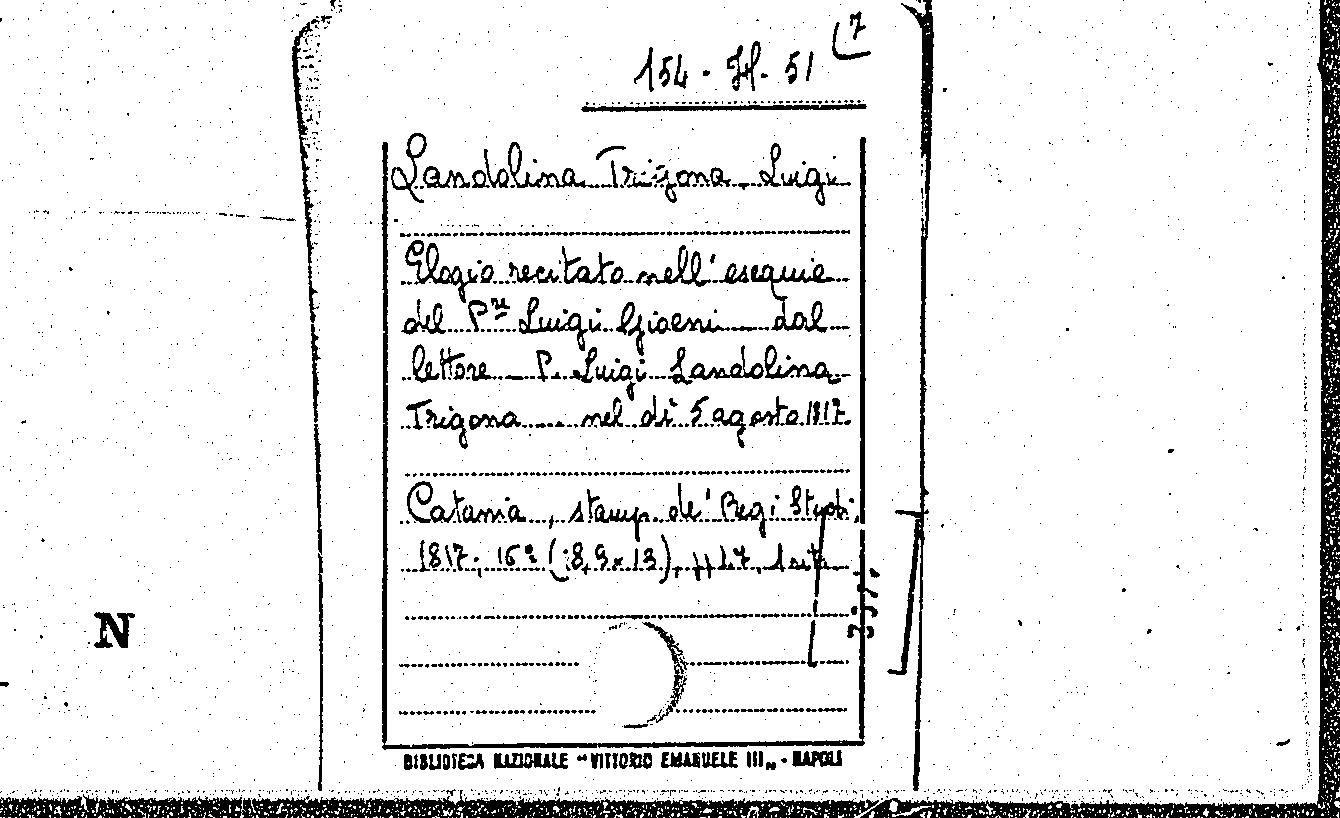 (7
154. H. 51
Landolina Trigona Luigi
Elogio recitato nell' esequie
del P.re Luigi Gioeni dal
lettore P. Luigi Landolina
Trigona ... nel dì 5 agosto 1817.
Catania, stamp. de' Regi Studi,
1817; 16° (18,9x13), pp
N
BIBLIOTECA NAZIONALE "VITTORIO EMANUELE III„ - NAPOLI